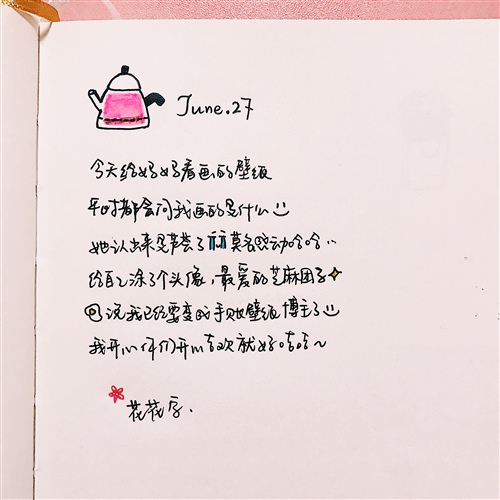 June.27
今天给妈妈看画的壁纸
平时都会问我画的是什么
她认出来是芦荟了 莫名感动哈哈
给自己涂了个头像,最爱的芝麻团子
说我已经要变成手账壁纸博主了
我开心你们开心喜欢就好嘻嘻~
花花字.